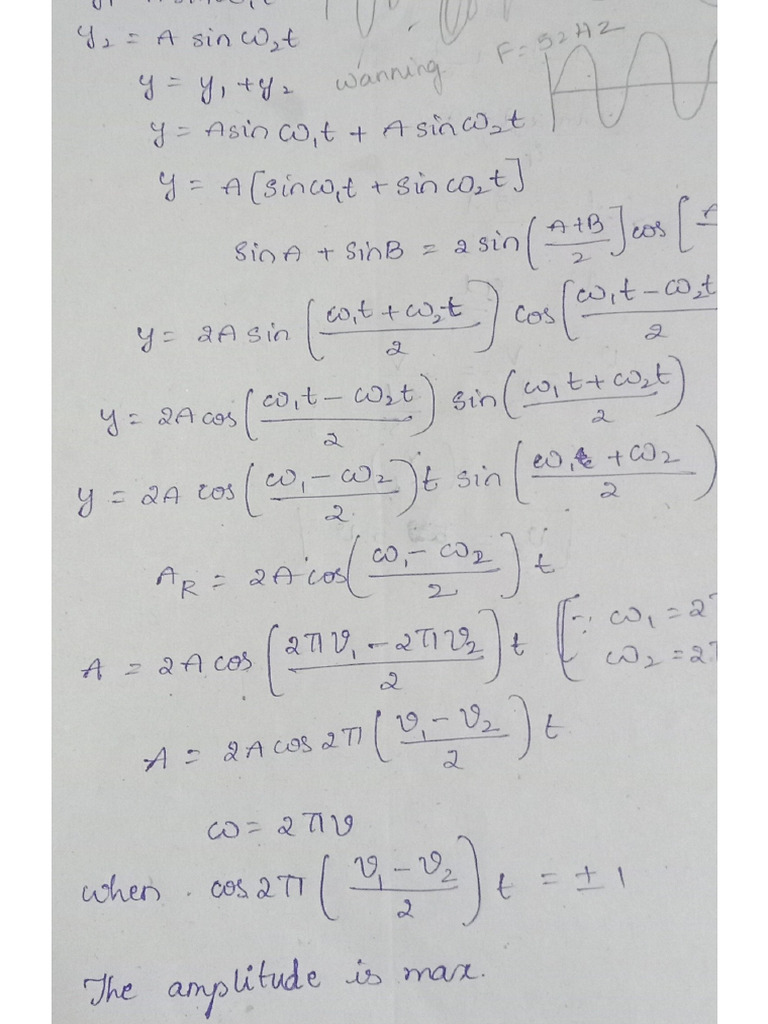 y₂ = A sin ω₂t
y = y₁ + y₂ wanning F = 52 HZ
y = A sin ω₁t + A sin ω₂t
y = A [sin ω₁t + sin ω₂t]
sin A + sin B = 2 sin (A+B/2] cos [
y = 2A sin (ω₁t + ω₂t/2) cos (ω₁t − ω₂t/2
y = 2A cos (ω₁t − ω₂t/2) sin (ω₁t + ω₂t/2)
y = 2A cos (ω₁ − ω₂/2)t sin (ω₁ + ω₂/2)
A_R = 2A cos (ω₁ − ω₂/2) t
A = 2A cos (2πν₁ − 2πν₂/2) t [∵ ω₁ = 2
ω₂ = 2
A = 2A cos 2π (ν₁ − ν₂/2) t
ω = 2πν
when cos 2π (ν₁ − ν₂/2) t = ± 1
The amplitude is max.